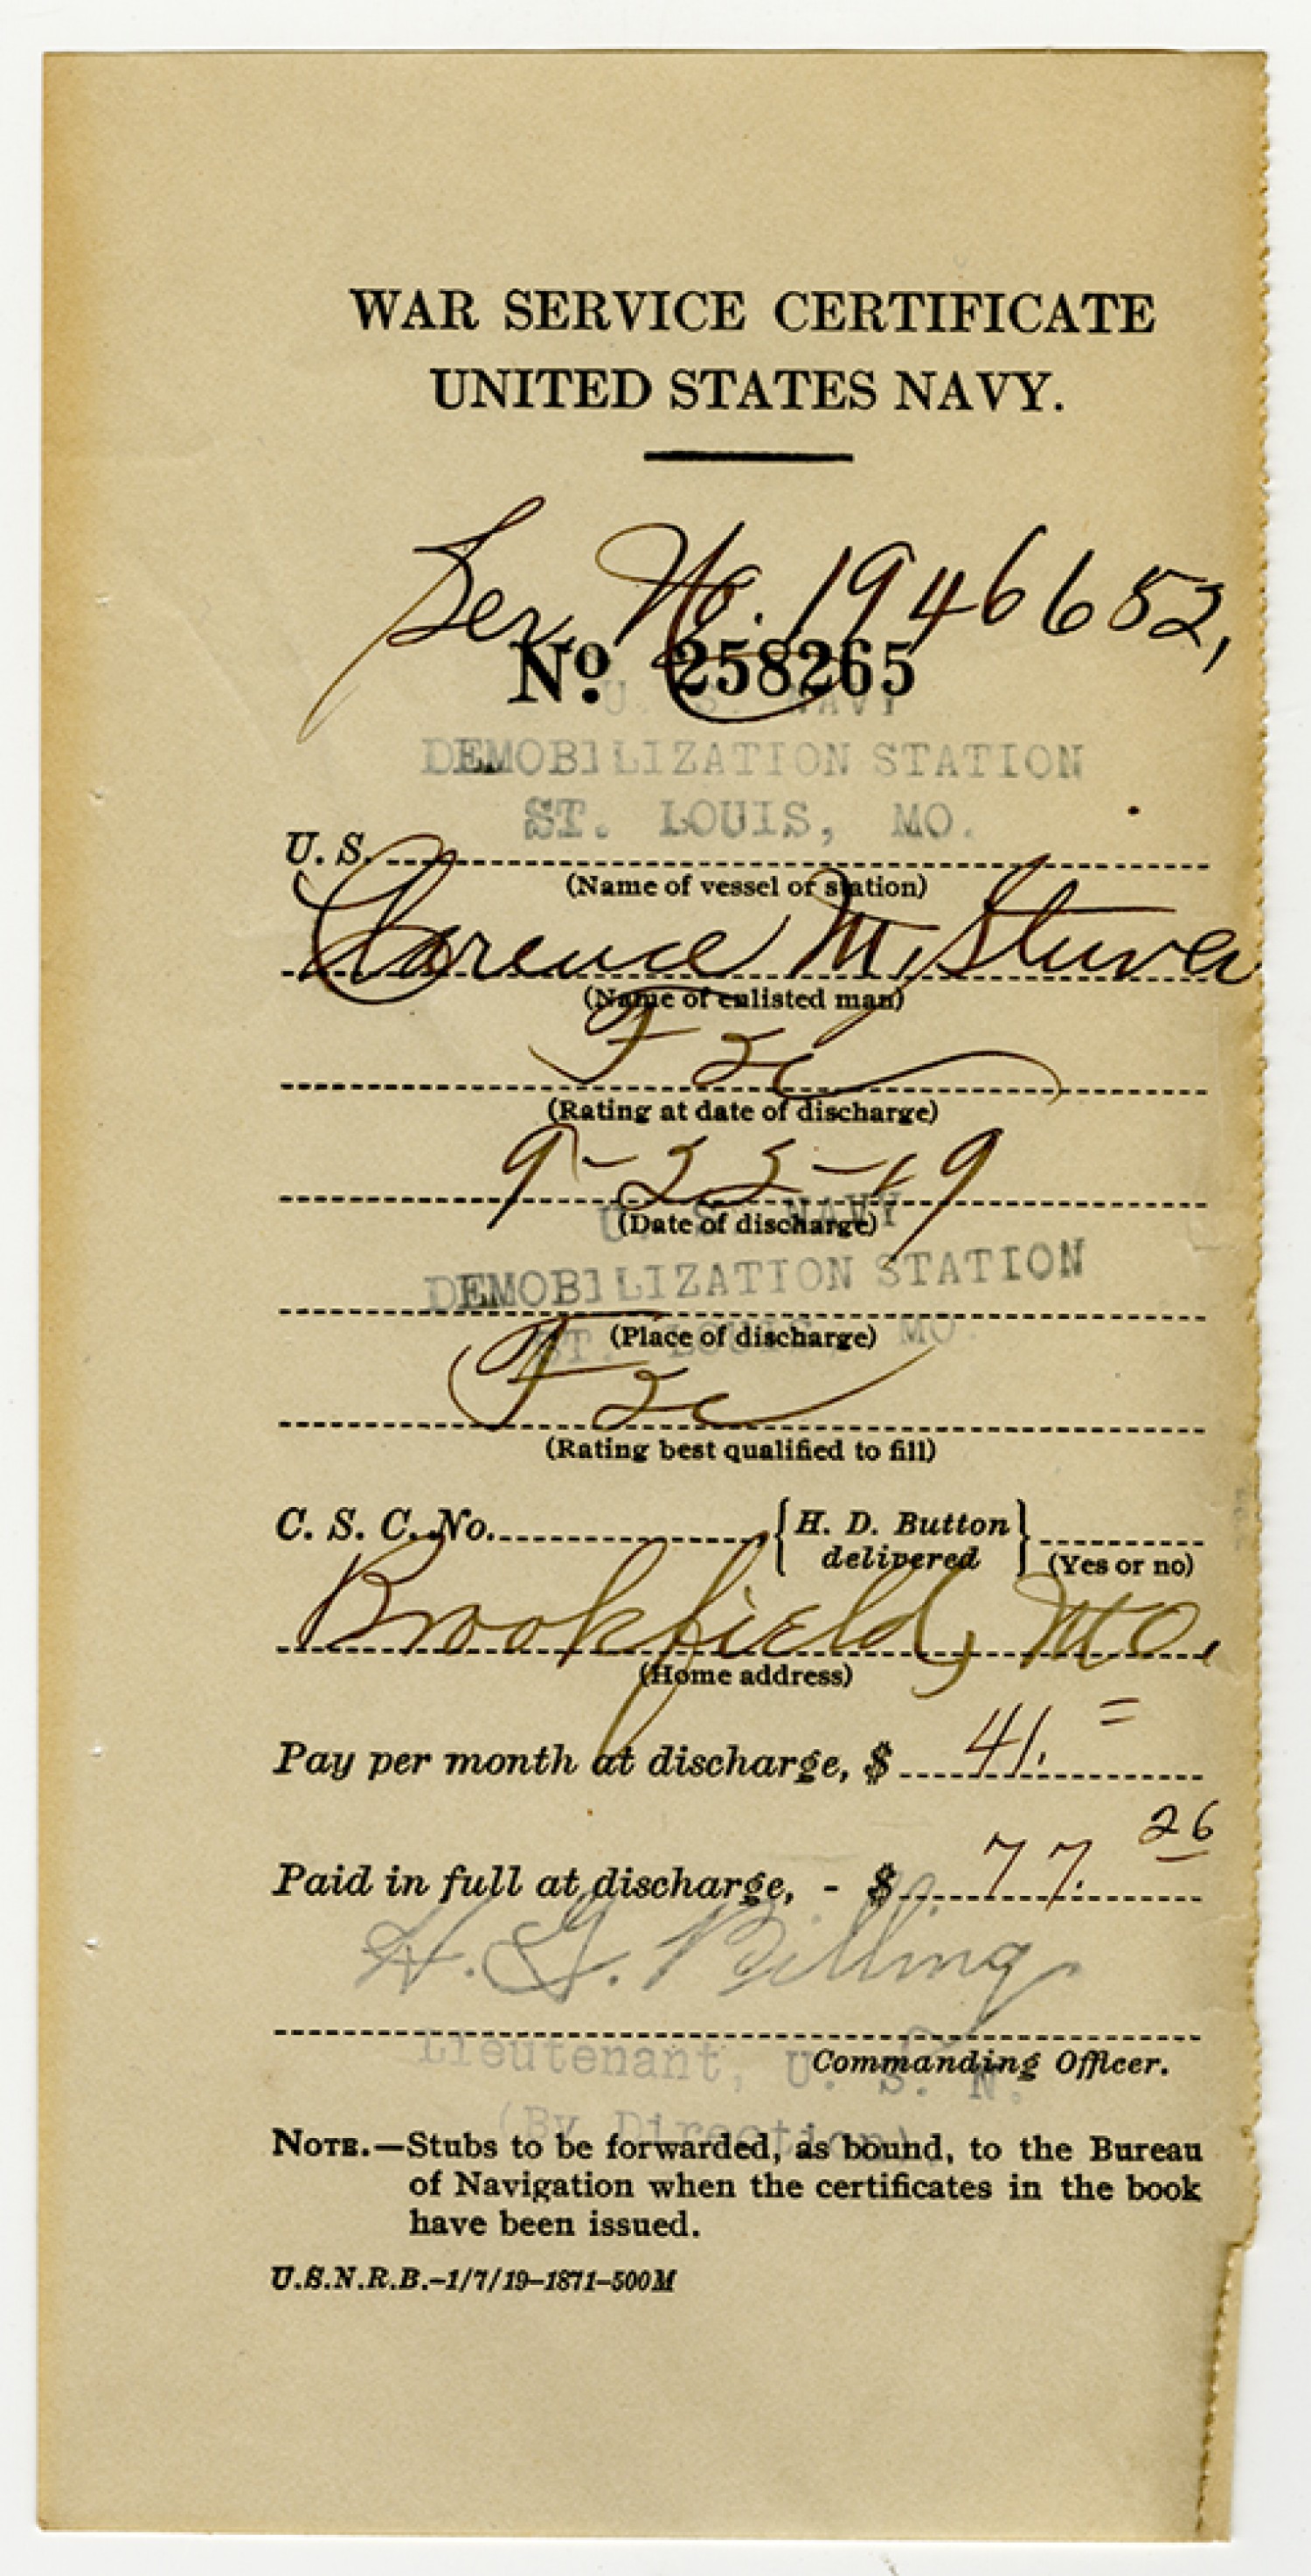 WAR SERVICE CERTIFICATE
UNITED STATES NAVY.
Ser. No. 1946652,
No 258265
U. S. NAVY
DEMOBILIZATION STATION
ST. LOUIS, MO.
U. S.
(Name of vessel or station)
Clarence M. Stuver
(Name of enlisted man)
F 2c
(Rating at date of discharge)
9-22-19
(Date of discharge)
U. S. NAVY
DEMOBILIZATION STATION
(Place of discharge)
ST. LOUIS, MO.
F 2c
(Rating best qualified to fill)
C. S. C. No. { H. D. Button delivered } (Yes or no)
Brookfield, Mo.
(Home address)
Pay per month at discharge, $ 41. =
Paid in full at discharge, - $ 77. 26
H. G. Billing
Commanding Officer.
Lieutenant, U. S. N.
(By Direction)
NOTE.—Stubs to be forwarded, as bound, to the Bureau
of Navigation when the certificates in the book
have been issued.
U.S.N.R.B.-1/7/19-1871-500M